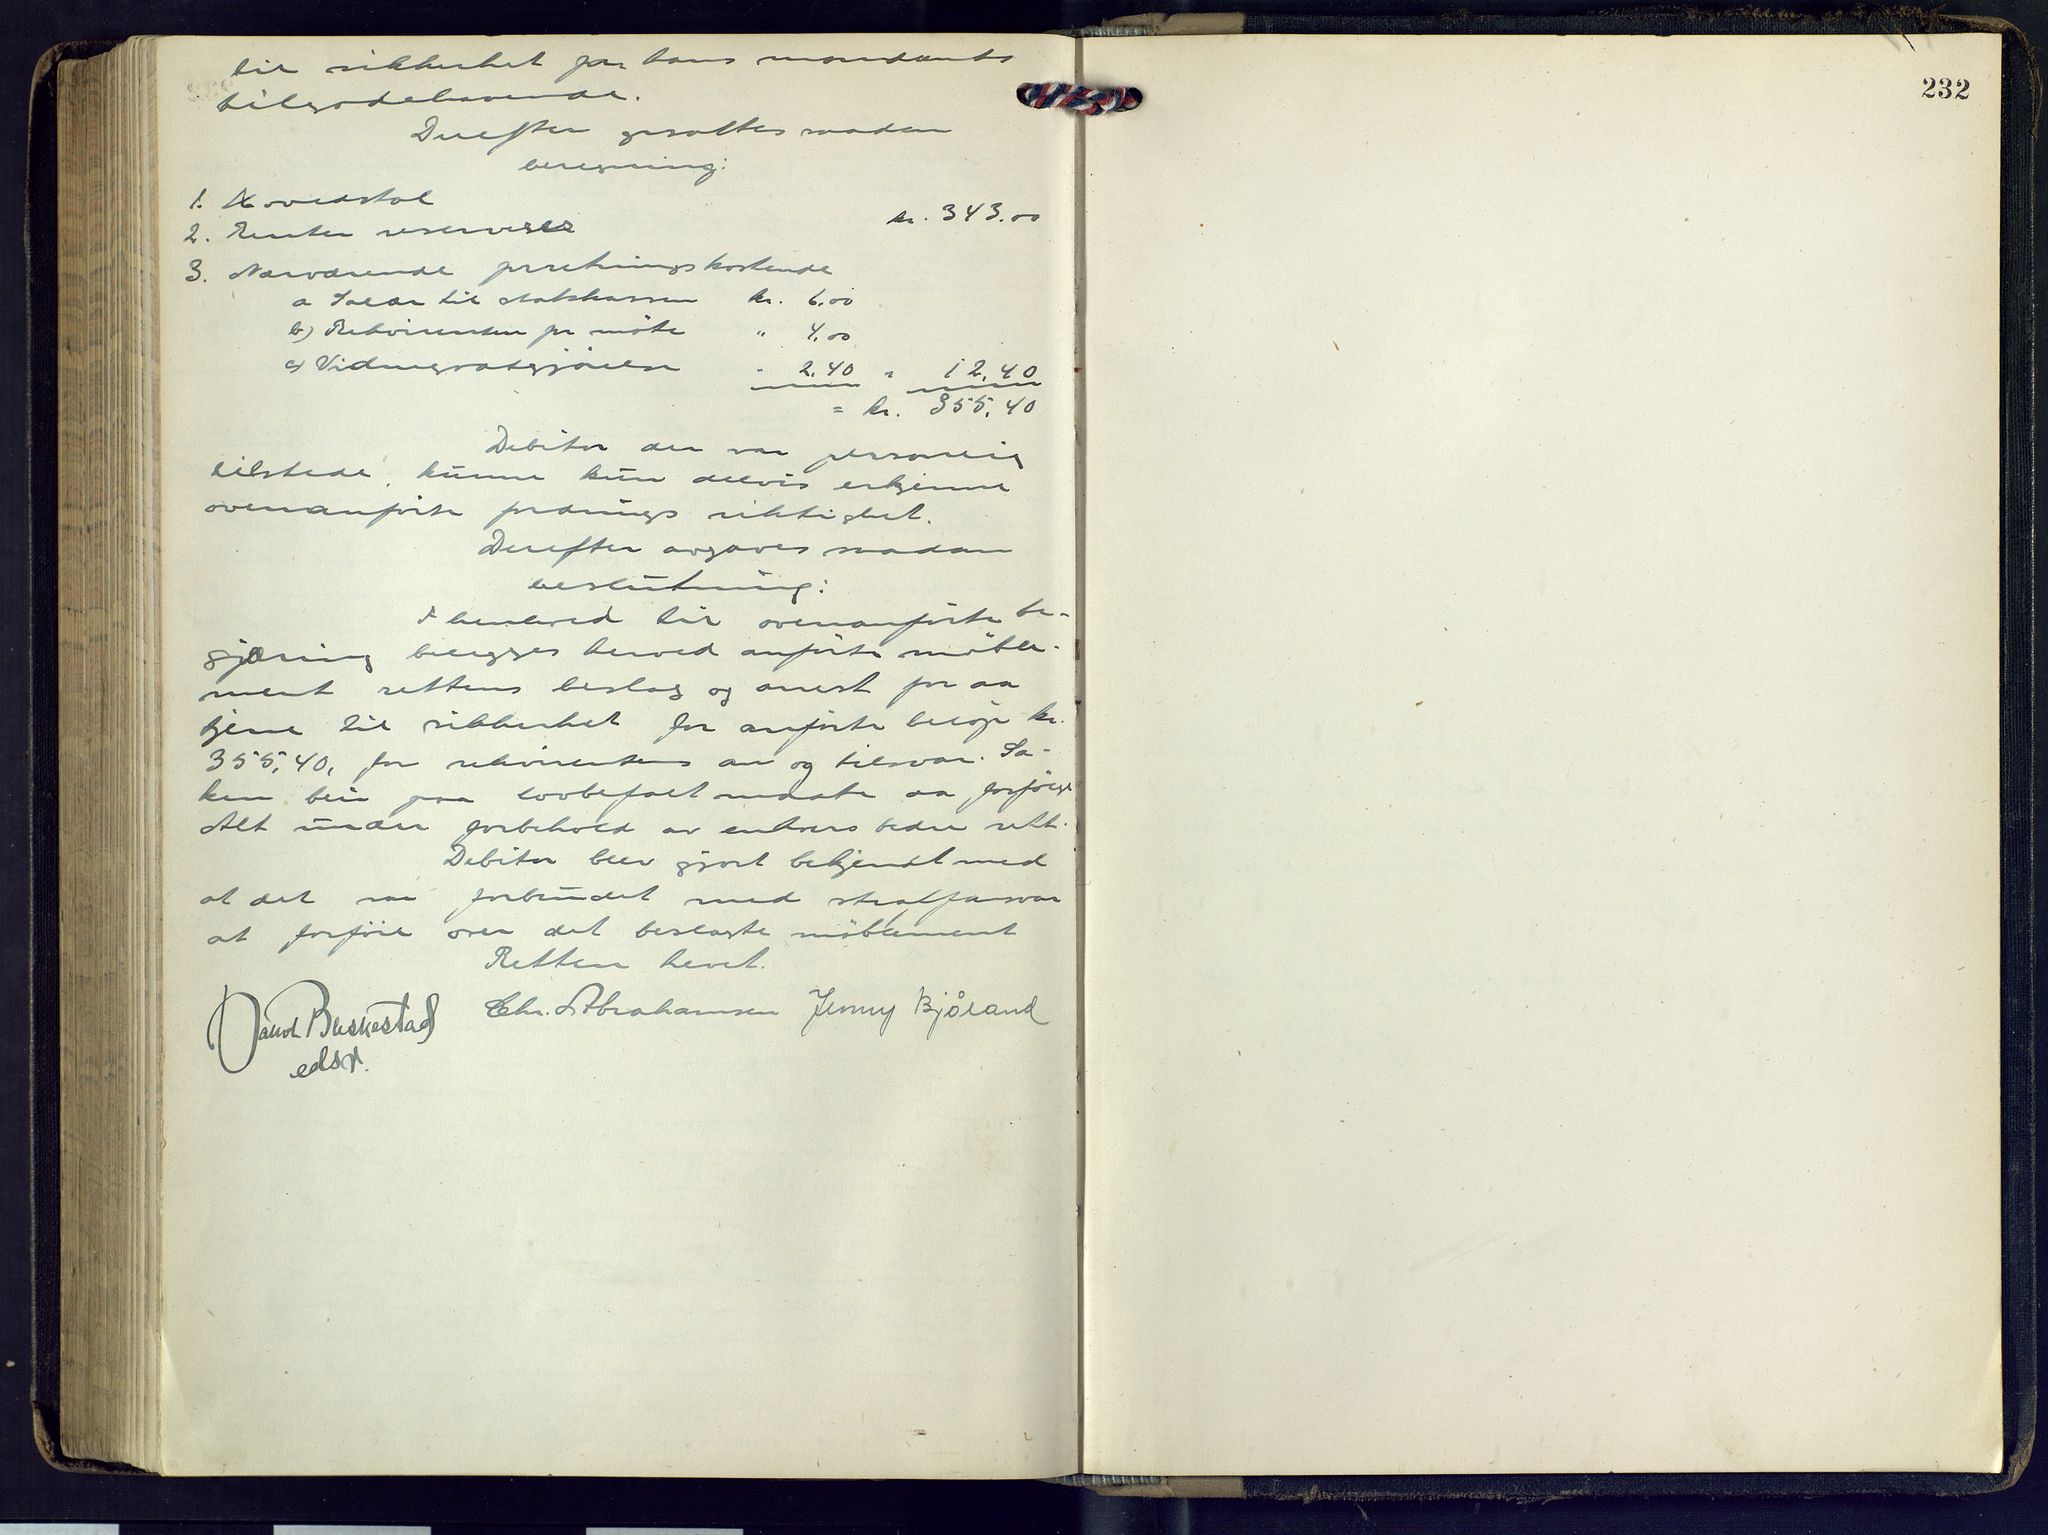 til sikkerhet for hans mandants
tilgodehavende.
Derefter gjordes saadan
beregning:
1. Hovedstol kr. 343.00
2. Renter reserveres
3. Nærværende forretnings kostende
a Salær til statskassen kr. 6.00
b) Rekvirenten for møte " 4.00
c) Vidnegodtgjørelse " 2.40 = 12.40
= kr. 355.40
Debitor der var personlig
tilstede, kunne kun delvis erkjenne
ovenanførte fordrings riktighet.
Derefter avgaves saadan
beslutning:
I henhold til ovenanførte be-
gjæring belegges herved anførte møble-
ment rettens beslag og arrest for aa
tjene til sikkerhet for anførte beløp kr.
355,40, for rekvirentens an og tilsvar. Sa-
ken blir paa lovbefalt maate aa forfølge
Alt under forbehold av enhvers bedre rett.
Debitor blev gjort bekjendt med
at det var forbundet med straffansvar
at forføie over det beslagte møblement
Retten hevet.
Buskestad Chr. Abrahamsen Jenny Bjåland
edsv.
232